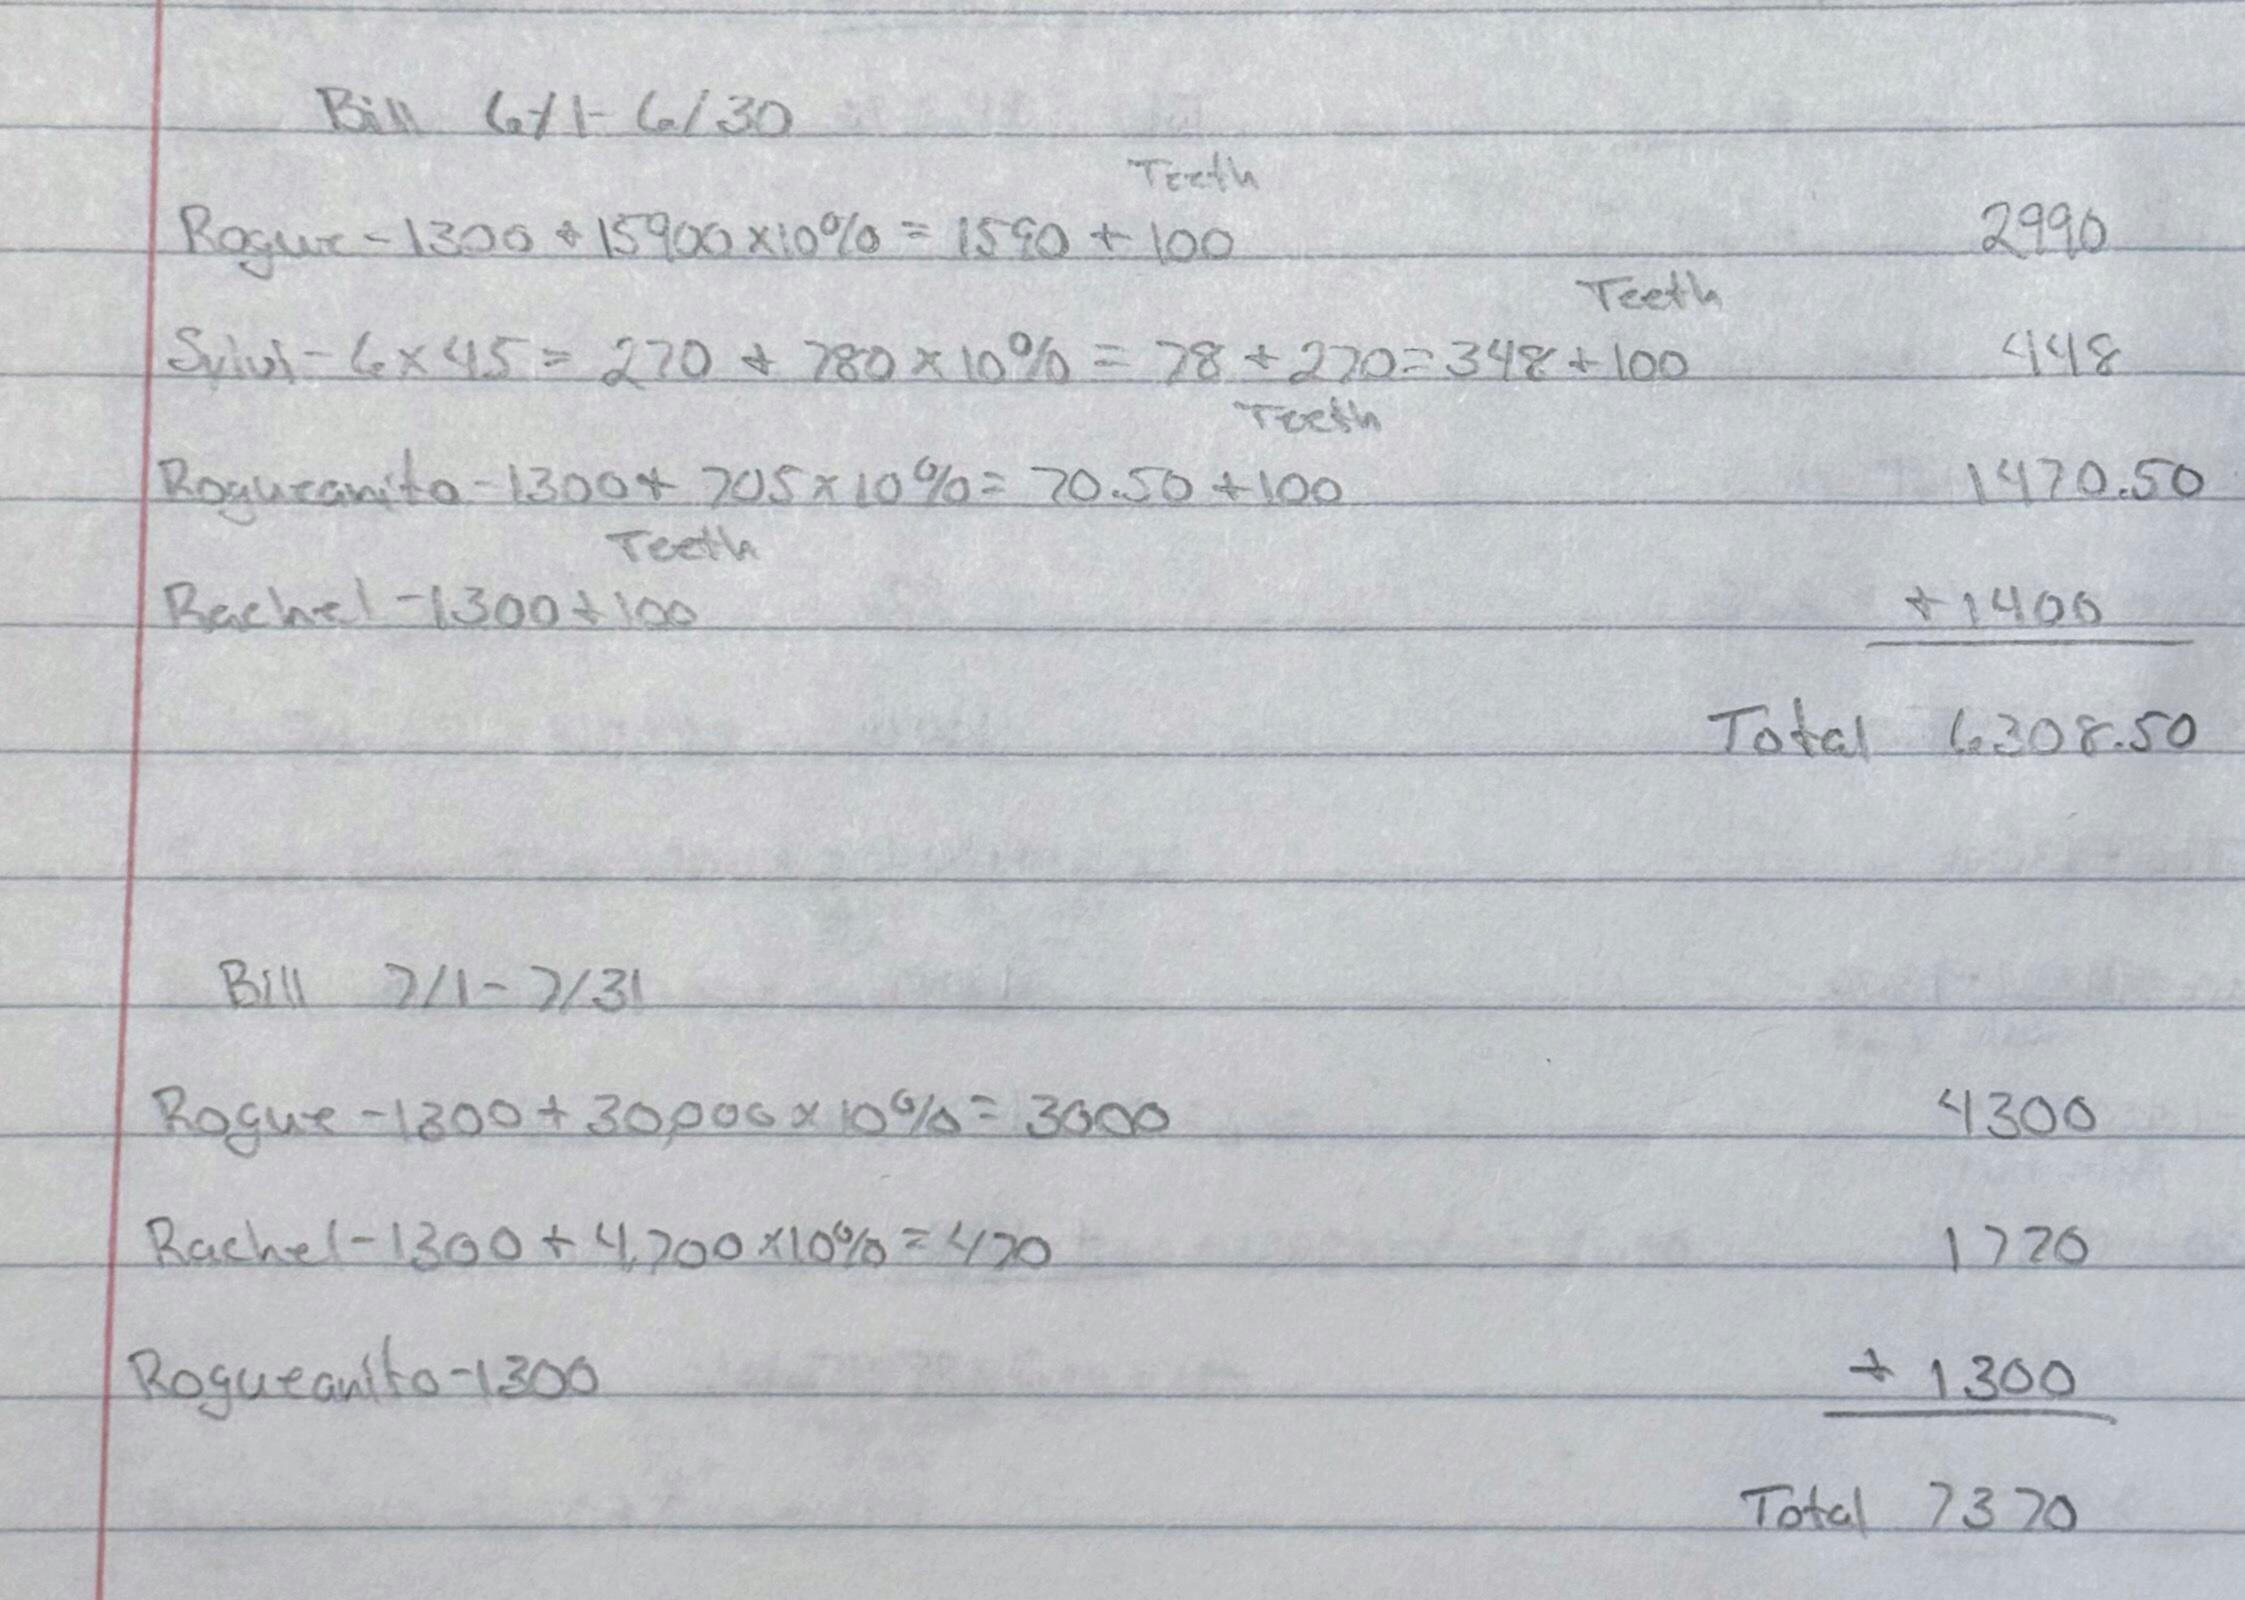 Bill 6/1- 6/30
Teeth
Rogue - 1300 + 15900 x 10% = 1590 + 100 2990
Teeth
Sylvi - 6 x 45 = 270 + 780 x 10% = 78 + 270 = 348 + 100 448
Teeth
Rogueanito - 1300 + 705 x 10% = 70.50 + 100 1470.50
Teeth
Rachel - 1300 + 100 + 1400
Total 6308.50
Bill 7/1- 7/31
Rogue - 1300 + 30,000 x 10% = 3000 4300
Rachel - 1300 + 4,700 x 10% = 470 1770
Rogueanito - 1300 + 1300
Total 7370